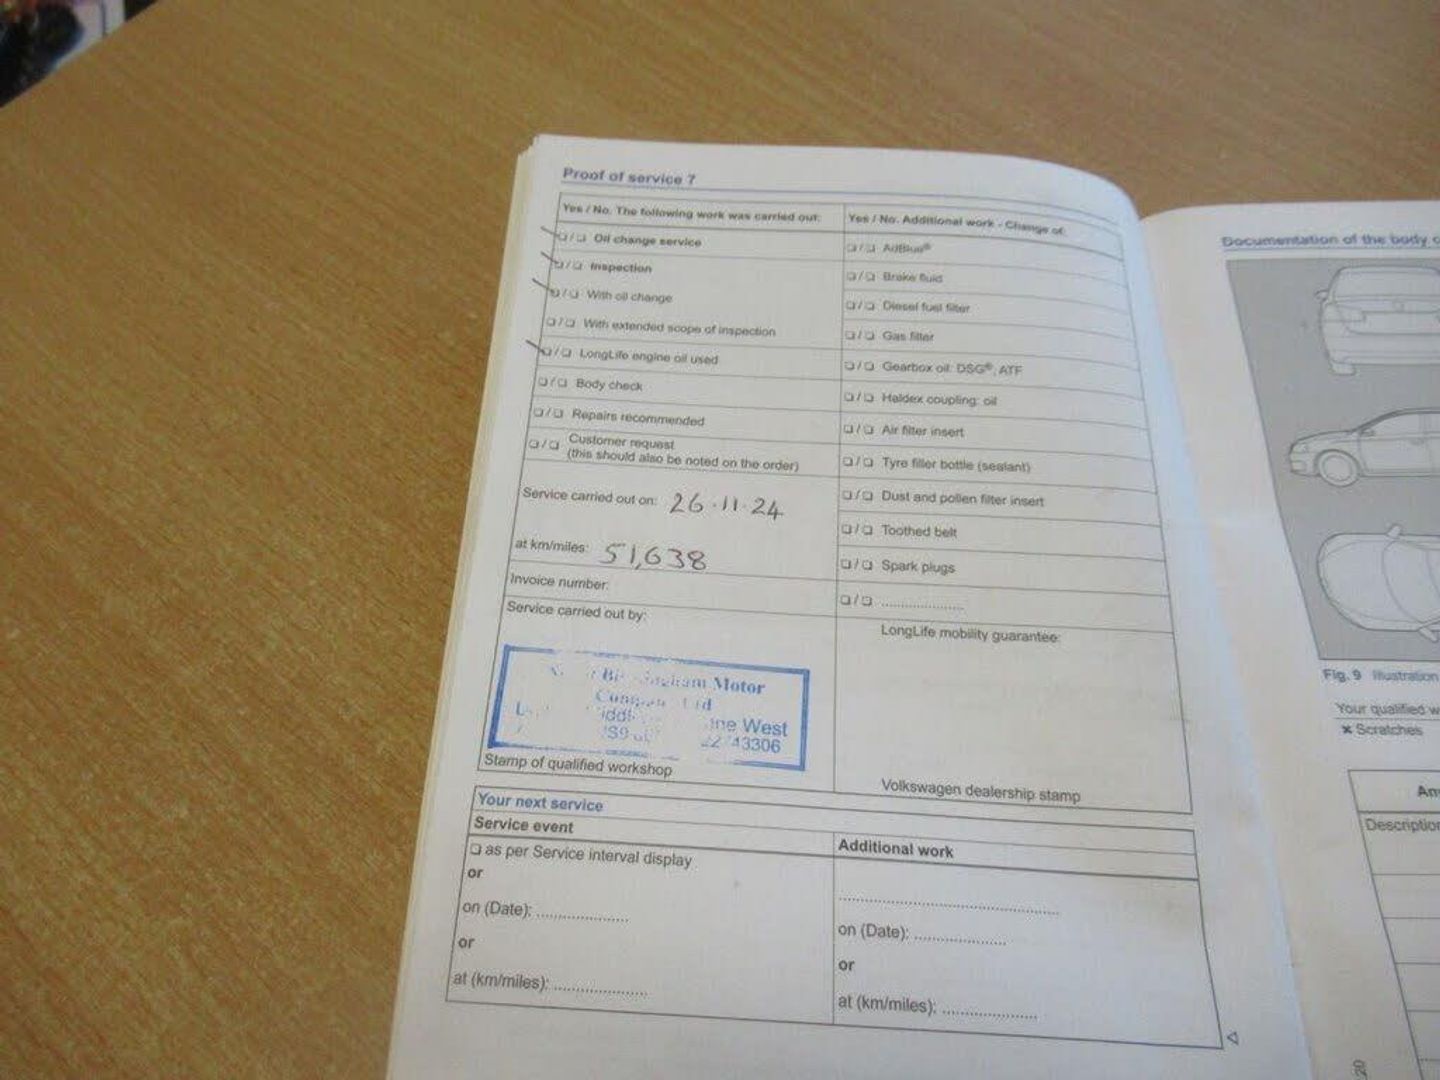 Proof of service 7
Yes / No. The following work was carried out:
❏/❏ Oil change service
❏/❏ Inspection
❏/❏ With oil change
❏/❏ With extended scope of inspection
❏/❏ LongLife engine oil used
❏/❏ Body check
❏/❏ Repairs recommended
❏/❏ Customer request
(this should also be noted on the order)
Service carried out on: 26.11.24
at km/miles: 51,638
Invoice number:
Service carried out by:
Motor
West
43306
Stamp of qualified workshop
Yes / No. Additional work - Change of:
❏/❏ AdBlue®
❏/❏ Brake fluid
❏/❏ Diesel fuel filter
❏/❏ Gas filter
❏/❏ Gearbox oil: DSG®, ATF
❏/❏ Haldex coupling: oil
❏/❏ Air filter insert
❏/❏ Tyre filler bottle (sealant)
❏/❏ Dust and pollen filter insert
❏/❏ Toothed belt
❏/❏ Spark plugs
❏/❏ .....................
LongLife mobility guarantee:
Volkswagen dealership stamp
Your next service
Service event
❏ as per Service interval display
or
on (Date): .....................
or
at (km/miles): .....................
Additional work
..................................................
on (Date): .....................
or
at (km/miles): .....................
Documentation of the body
Fig. 9 Illustration
Your qualified
× Scratches
Description
20